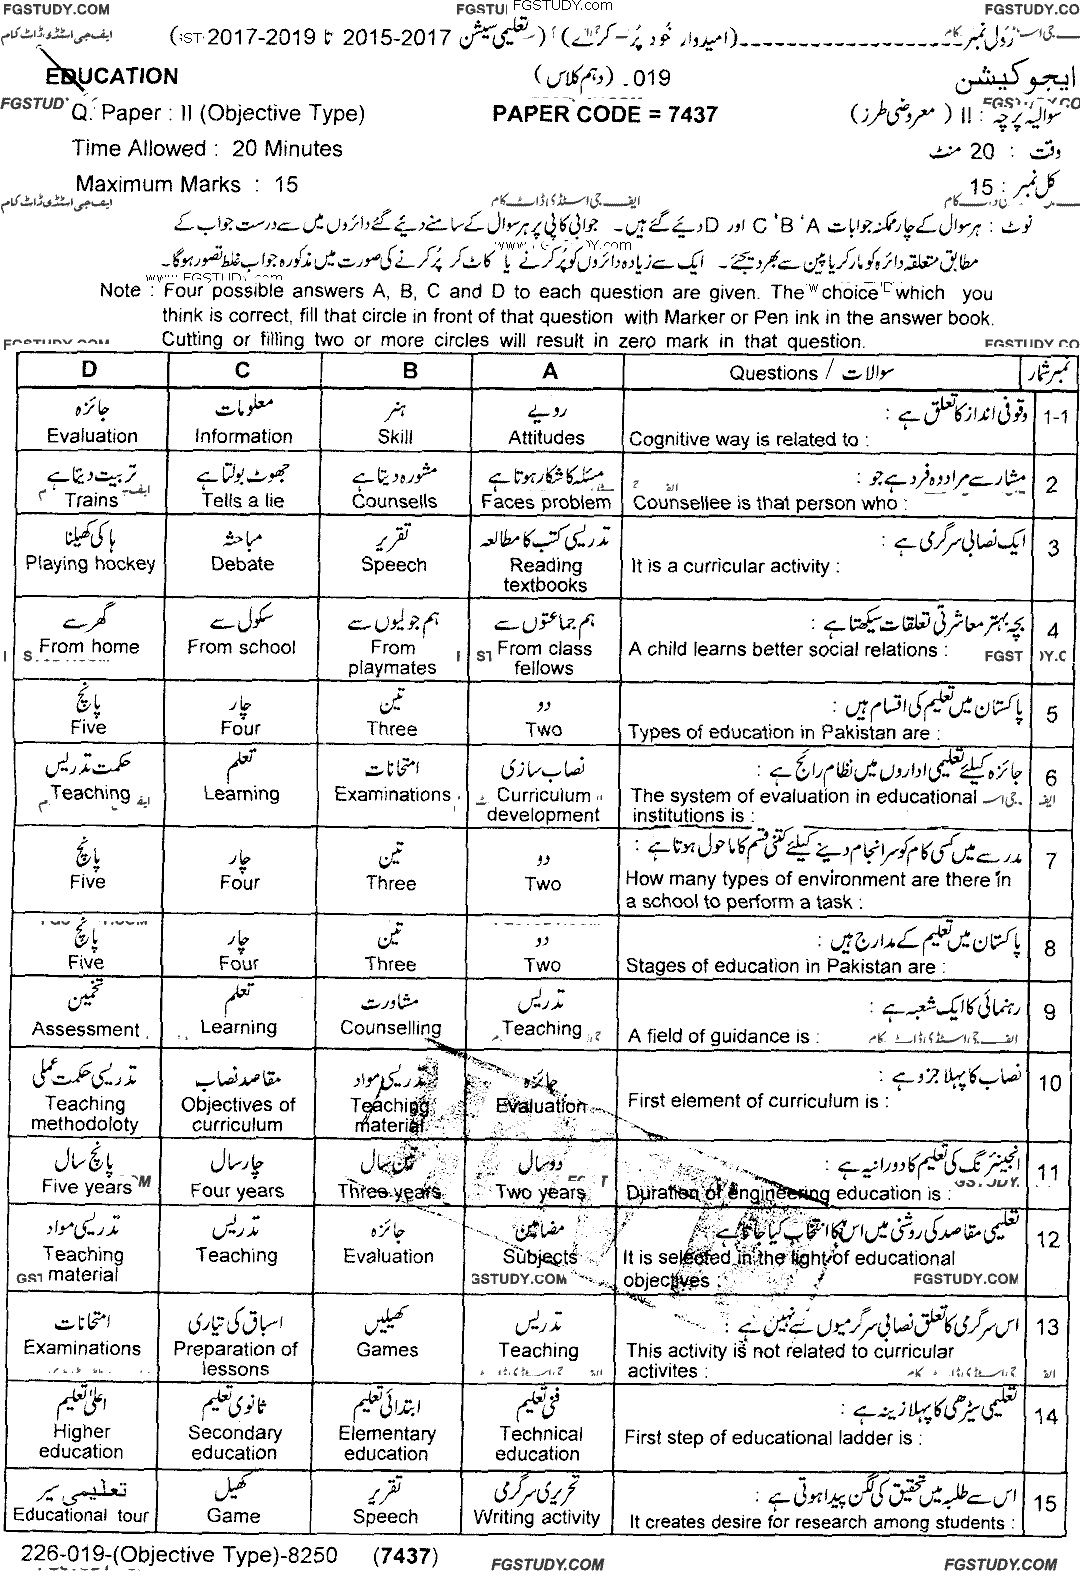 FGSTUDY.COM FGSTUDY.COM FGSTUDY.CO
رول نمبر (امیدوار خود پُر کرے) (تعلیمی سیشن 2015-2017 تا 2017-2019)
EDUCATION 019۔ (دہم کلاس) ایجوکیشن
Q. Paper : II (Objective Type) PAPER CODE = 7437 سوالیہ پرچہ : II (معروضی طرز)
Time Allowed : 20 Minutes وقت : 20 منٹ
Maximum Marks : 15 کل نمبر : 15
نوٹ : ہر سوال کے چار ممکنہ جوابات A ' B ' C اور D دیئے گئے ہیں۔ جوابی کاپی پر ہر سوال کے سامنے دیئے گئے دائروں میں سے درست جواب کے
مطابق متعلقہ دائرہ کو مارکر یا پین سے بھر دیجئے۔ ایک سے زیادہ دائروں کو پُر کرنے یا کاٹ کر پُر کرنے کی صورت میں مذکورہ جواب غلط تصور ہوگا۔
Note : Four possible answers A, B, C and D to each question are given. The choice which you
think is correct, fill that circle in front of that question with Marker or Pen ink in the answer book.
Cutting or filling two or more circles will result in zero mark in that question.
D C B A Questions / سوالات نمبر شمار
جائزہ معلومات ہنر رویے وقوفی انداز کا تعلق ہے : 1-1
Evaluation Information Skill Attitudes Cognitive way is related to :
تربیت دیتا ہے جھوٹ بولتا ہے مشورہ دیتا ہے مسئلہ کا شکار ہوتا ہے مشار سے مراد وہ فرد ہے جو : 2
Trains Tells a lie Counsells Faces problem Counsellee is that person who :
ہاکی کھیلنا مباحثہ تقریر تدریسی کتب کا مطالعہ ایک نصابی سرگرمی ہے : 3
Playing hockey Debate Speech Reading textbooks It is a curricular activity :
گھر سے سکول سے ہم جولیوں سے ہم جماعتوں سے بچہ بہتر معاشرتی تعلقات سیکھتا ہے : 4
From home From school From playmates From class fellows A child learns better social relations :
پانچ چار تین دو پاکستان میں تعلیم کی اقسام ہیں : 5
Five Four Three Two Types of education in Pakistan are :
حکمت تدریس تعلم امتحانات نصاب سازی جائزہ کیلئے تعلیمی اداروں میں نظام رائج ہے : 6
Teaching Learning Examinations Curriculum development The system of evaluation in educational
institutions is :
پانچ چار تین دو مدرسے میں کسی کام کو سرانجام دینے کیلئے کتنی قسم کا ماحول ہوتا ہے : 7
Five Four Three Two How many types of environment are there in
a school to perform a task :
پانچ چار تین دو پاکستان میں تعلیم کے مدارج ہیں : 8
Five Four Three Two Stages of education in Pakistan are :
تخمین تعلم مشاورت تدریس رہنمائی کا ایک شعبہ ہے : 9
Assessment Learning Counselling Teaching A field of guidance is :
تدریسی حکمت عملی مقاصد نصاب تدریسی مواد جائزہ نصاب کا پہلا جزو ہے : 10
Teaching methodoloty Objectives of curriculum Teaching material Evaluation First element of curriculum is :
پانچ سال چار سال تین سال دو سال انجینئرنگ کی تعلیم کا دورانیہ ہے : 11
Five years Four years Three years Two years Duration of engineering education is :
تدریسی مواد تدریس جائزہ مضامین تعلیمی مقاصد کی روشنی میں اس کا انتخاب کیا جاتا ہے : 12
Teaching material Teaching Evaluation Subjects It is selected in the light of educational
objectives :
GSTUDY.COM FGSTUDY.COM
امتحانات اسباق کی تیاری کھیلیں تدریس اس سرگرمی کا تعلق نصابی سرگرمیوں سے نہیں ہے : 13
Examinations Preparation of lessons Games Teaching This activity is not related to curricular
activites :
اعلیٰ تعلیم ثانوی تعلیم ابتدائی تعلیم فنی تعلیم تعلیمی سیڑھی کا پہلا زینہ ہے : 14
Higher education Secondary education Elementary education Technical education First step of educational ladder is :
تعلیمی سیر کھیل تقریر تحریری سرگرمی اس سے طلبہ میں تحقیق کی لگن پیدا ہوتی ہے : 15
Educational tour Game Speech Writing activity It creates desire for research among students :
226-019-(Objective Type)-8250 (7437) FGSTUDY.COM FGSTUDY.COM